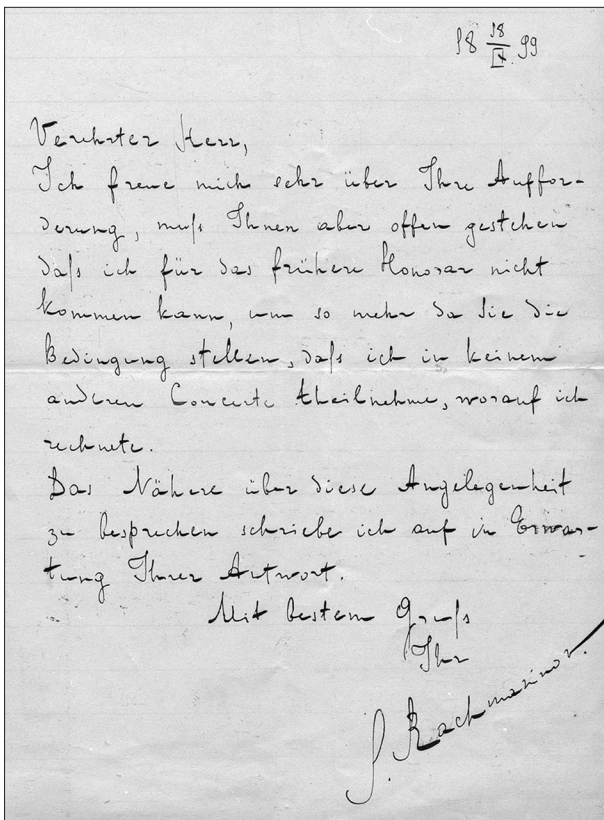 18 18/IX 99
Verehrter Herr,
Ich freue mich sehr über Ihre Auffor-
derung, muß Ihnen aber offen gestehen
daß ich für das frühere Honorar nicht
kommen kann, um so mehr da Sie die
Bedingung stellen, daß ich in keinem
anderen Concerte theilnehme, worauf ich
rechnete.
Das Nähere über diese Angelegenheit
zu besprechen schiebe ich auf in Erwar-
tung Ihrer Antwort.
Mit bestem Gruß
Ihr
S. Rachmaninow.